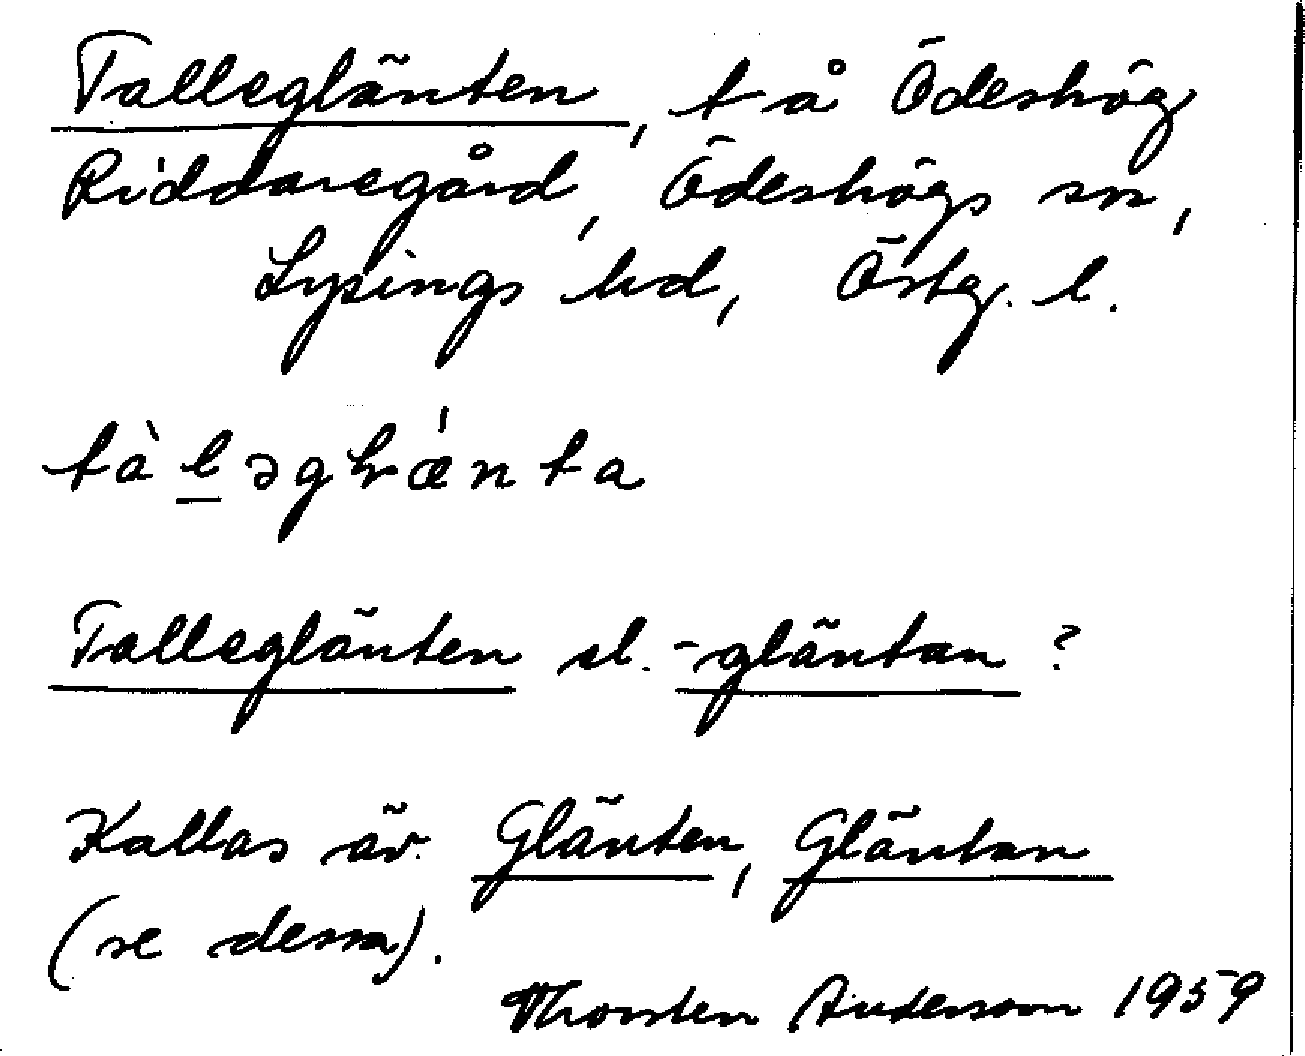 Talleglänten, t å Ödeshög
Riddaregård, Ödeshögs sn,
Lysings hd, Östg. l.
tàləglǽnta
Talleglänten el. -gläntan?
Kallas äv. Glänten, Gläntan
(se dessa).
Thorsten Andersson 1959